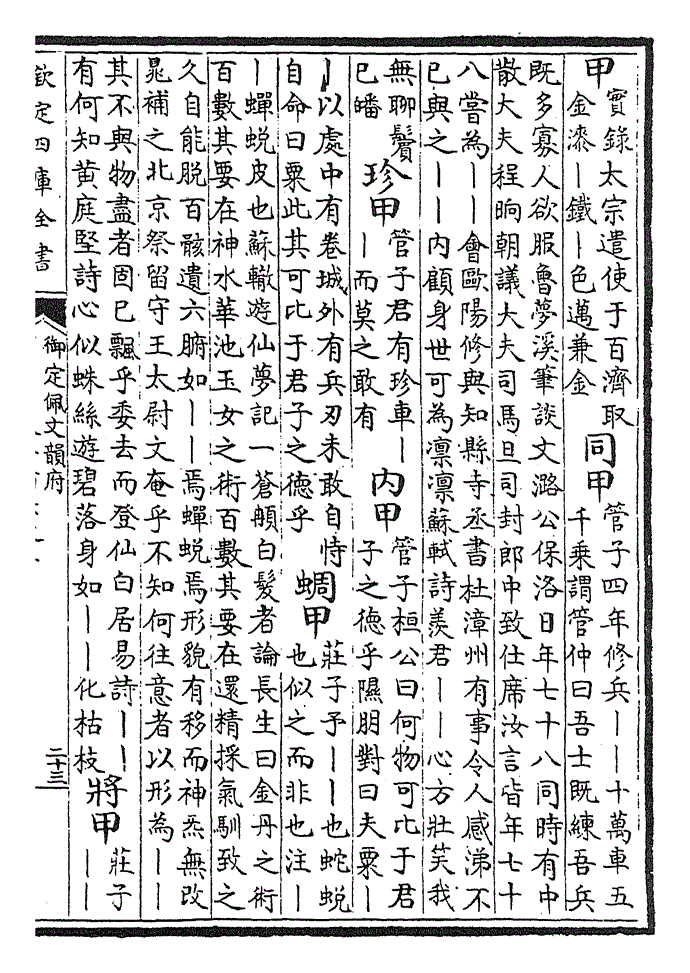 甲
實錄太宗遣使于百濟取
金漆丨鐵丨色邁兼金
同甲
管子四年修兵丨丨十萬車五
千乘謂管仲曰吾士既練吾兵
既多寡人欲服魯夢溪筆談文潞公保洛日年七十八同時有中
散大夫程晌朝議大夫司馬旦司封郎中致仕席汝言皆年七十
八嘗為丨丨會歐陽修與知縣寺丞書杜漳州有事令人感涕不
已與之丨丨内顧身世可為凛凛蘇軾詩羨君丨丨心方壯笑我
無聊鬢
已皤
珍甲
管子君有珍車丨
丨而莫之敢有
内甲
管子桓公曰何物可比于君
子之德乎隰朋對曰夫粟丨
丨以處中有卷城外有兵刃未敢自恃
自命曰粟此其可比于君子之德乎
蜩甲
莊子予丨丨也蛇蜕
也似之而非也注丨
丨蟬蜕皮也蘇轍遊仙夢記一蒼顏白髮者論長生曰金丹之術
百數其要在神水華池玉女之術百數其要在還精採氣馴致之
久自能脱百骸遺六腑如丨丨焉蟬蜕焉形貌有移而神炁無改
晁補之北京祭留守王太尉文奄乎不知何往意者以形為丨丨
其不與物盡者固已飄乎委去而登仙白居易詩丨丨
有何知黄庭堅詩心似蛛絲遊碧落身如丨丨化枯枝
將甲
莊子
丨丨
欽定四庫全書
御定佩文韻府
二十三